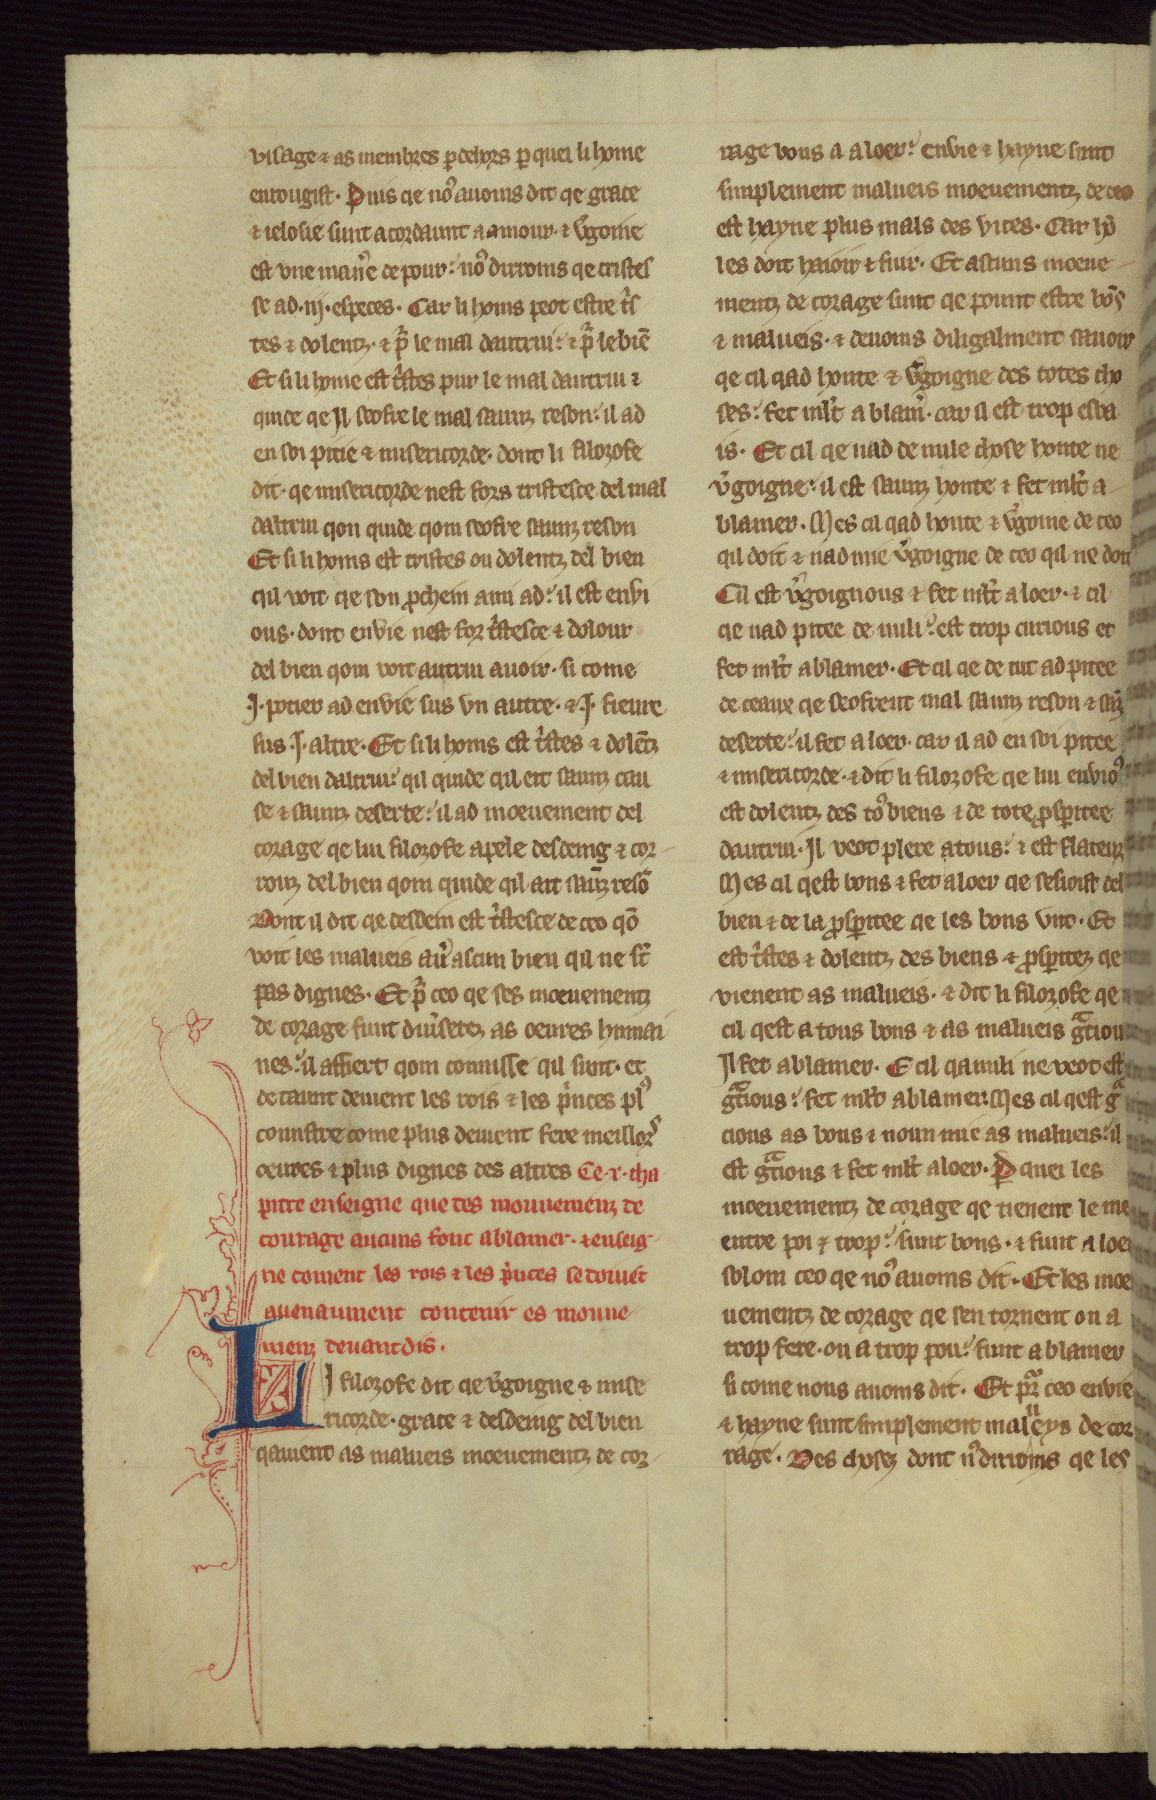 visage ⁊ as membres ꝑ dehors ꝑ quei li home
enrougist. Puis qe noꝰ auoms dit qe grace
⁊ ielosie sunt acordaunt a amour. ⁊ v̓goine
est vne man̓e de pour: noꝰ dirroms qe tristes
se ad .iij. especes. Car li homs peot estre t͛s
tes ⁊ dolentz. ⁊ pͬ le mal dautrui: ⁊ pͬ le biē
Et si li home est t͛stes pur le mal dautrui ⁊
quide qe Il seofre le mal saunz reson: il ad
en soi pitie ⁊ misericorde. dont li filozofe
dit. qe misericorde nest fors tristesce del mal
daltrui qon quide qom seofre saunz reson
Et si li homs est tristes ou dolentz del bien
qil voit qe son ꝓchein ami ad: il est envi
ous. dont envie nest forz t͛stesce ⁊ dolour
del bien qom voit autrui auoir. si come
.I. potier ad envie sus vn autre. ⁊ .I. fieure
sus .I. altre. Et si li homs est t͛stes ⁊ dolētz
del bien daltrui: qil quide qil eit saunz cau
se ⁊ saunz deserte: il ad moeuement del
corage qe lui filozofe apele desdeing ⁊ cor
rouz del bien qom quide qil ait saūz resō
Dont il dit qe desdein est t͛stesce de ceo qō
voit les malueis au͛ ascun bien qil ne st͛
pas dignes. Et pͬ ceo qe ses moeuementz
de corage sunt diu͛setez as oeures humai
nes: il affiert qom connisse qil sunt. et
de taunt deiuent les rois ⁊ les p͛nces plꝰ
counstre come plus deiuent fere meillorꝰ
oeures ⁊ plus dignes des altres Ce .x. cha
pitre enseigne que des mouuemenz de
courage aucuns sont a blamer. ⁊ enseig
ne coment les rois ⁊ les p͛nces se doiuēt
auenaument contenir es mouue
menz deuant dis.
LI filozofe dit qe v̓goigne ⁊ mise
ricorde. grace ⁊ desdeing del bien
qauient as malueis moeuementz de cor
rage vous a a loer: envie ⁊ hayne sunt
simplement malueis moeuementz de ceo
est hayne plus mals des vices. Car hō
les doit haioir ⁊ fuir. Et ascuns moeue
mentz de corage sunt qe pount estre bōs
⁊ malueis. ⁊ deuoms diligalment sauoir
qe cil qad honte ⁊ v̓goigne des totes cho
ses: fet ml̓t a blam͛. car il est trop esba
is. Et cil qe nad de nule chose honte ne
v̓goigne: il est saunz honte ⁊ fet ml̓t a
blamer. Mes cil qad honte ⁊ v̓goine de ceo
qil doit ⁊ nad mie v̓goigne de ceo qil ne doit
Cil est v̓goignous ⁊ fet ml̓t a loer. ⁊ cil
qe nad pitee de nuli: est trop curious et
fet ml̓t a blamer. Et cil qe de tut ad pitee
de ceaux qe seofrent mal saunz reson ⁊ sāz
deserte: il fet a loer. car il ad en soi pitee
⁊ misericorde. ⁊ dit li filozofe qe lui envioꝰ
est dolentz des toꝰ biens ⁊ de tote ꝓsꝑitee
dautrui. Il veot plere a tous: ⁊ est flateur
Mes cil qest bons ⁊ fet a loer qe sesioist del
bien ⁊ de la ꝓsꝑitee qe les bons vnt. Et
est t͛stes ⁊ dolentz des biens ⁊ ꝓsꝑitez qe
vienent as malueis. ⁊ dit li filozofe qe
cil qest a tous bons ⁊ as malueis gͣtious
Il fet a blamer. E cil qa nuli ne veot est͛
gͣtious: fet ml̓t a blamer. Mes cil qest gͣ
cious as bons ⁊ noun mie as malueis: il
est gͣtious ⁊ fet ml̓t a loer. Ꝑ quei les
moeuementz de corage qe tienent le me
entre poi ⁊ trop: sunt bons. ⁊ funt a loer
solom ceo qe noꝰ auoms dit. Et les moe
uementz de corage qe sen tornent ou a
trop fere. ou a trop pou: funt a blamer
si come nous auoms dit. Et pͬ ceo envie
⁊ hayne sunt simplement malueys de cor
rage. Des choses dont nꝰ dirroms qe les